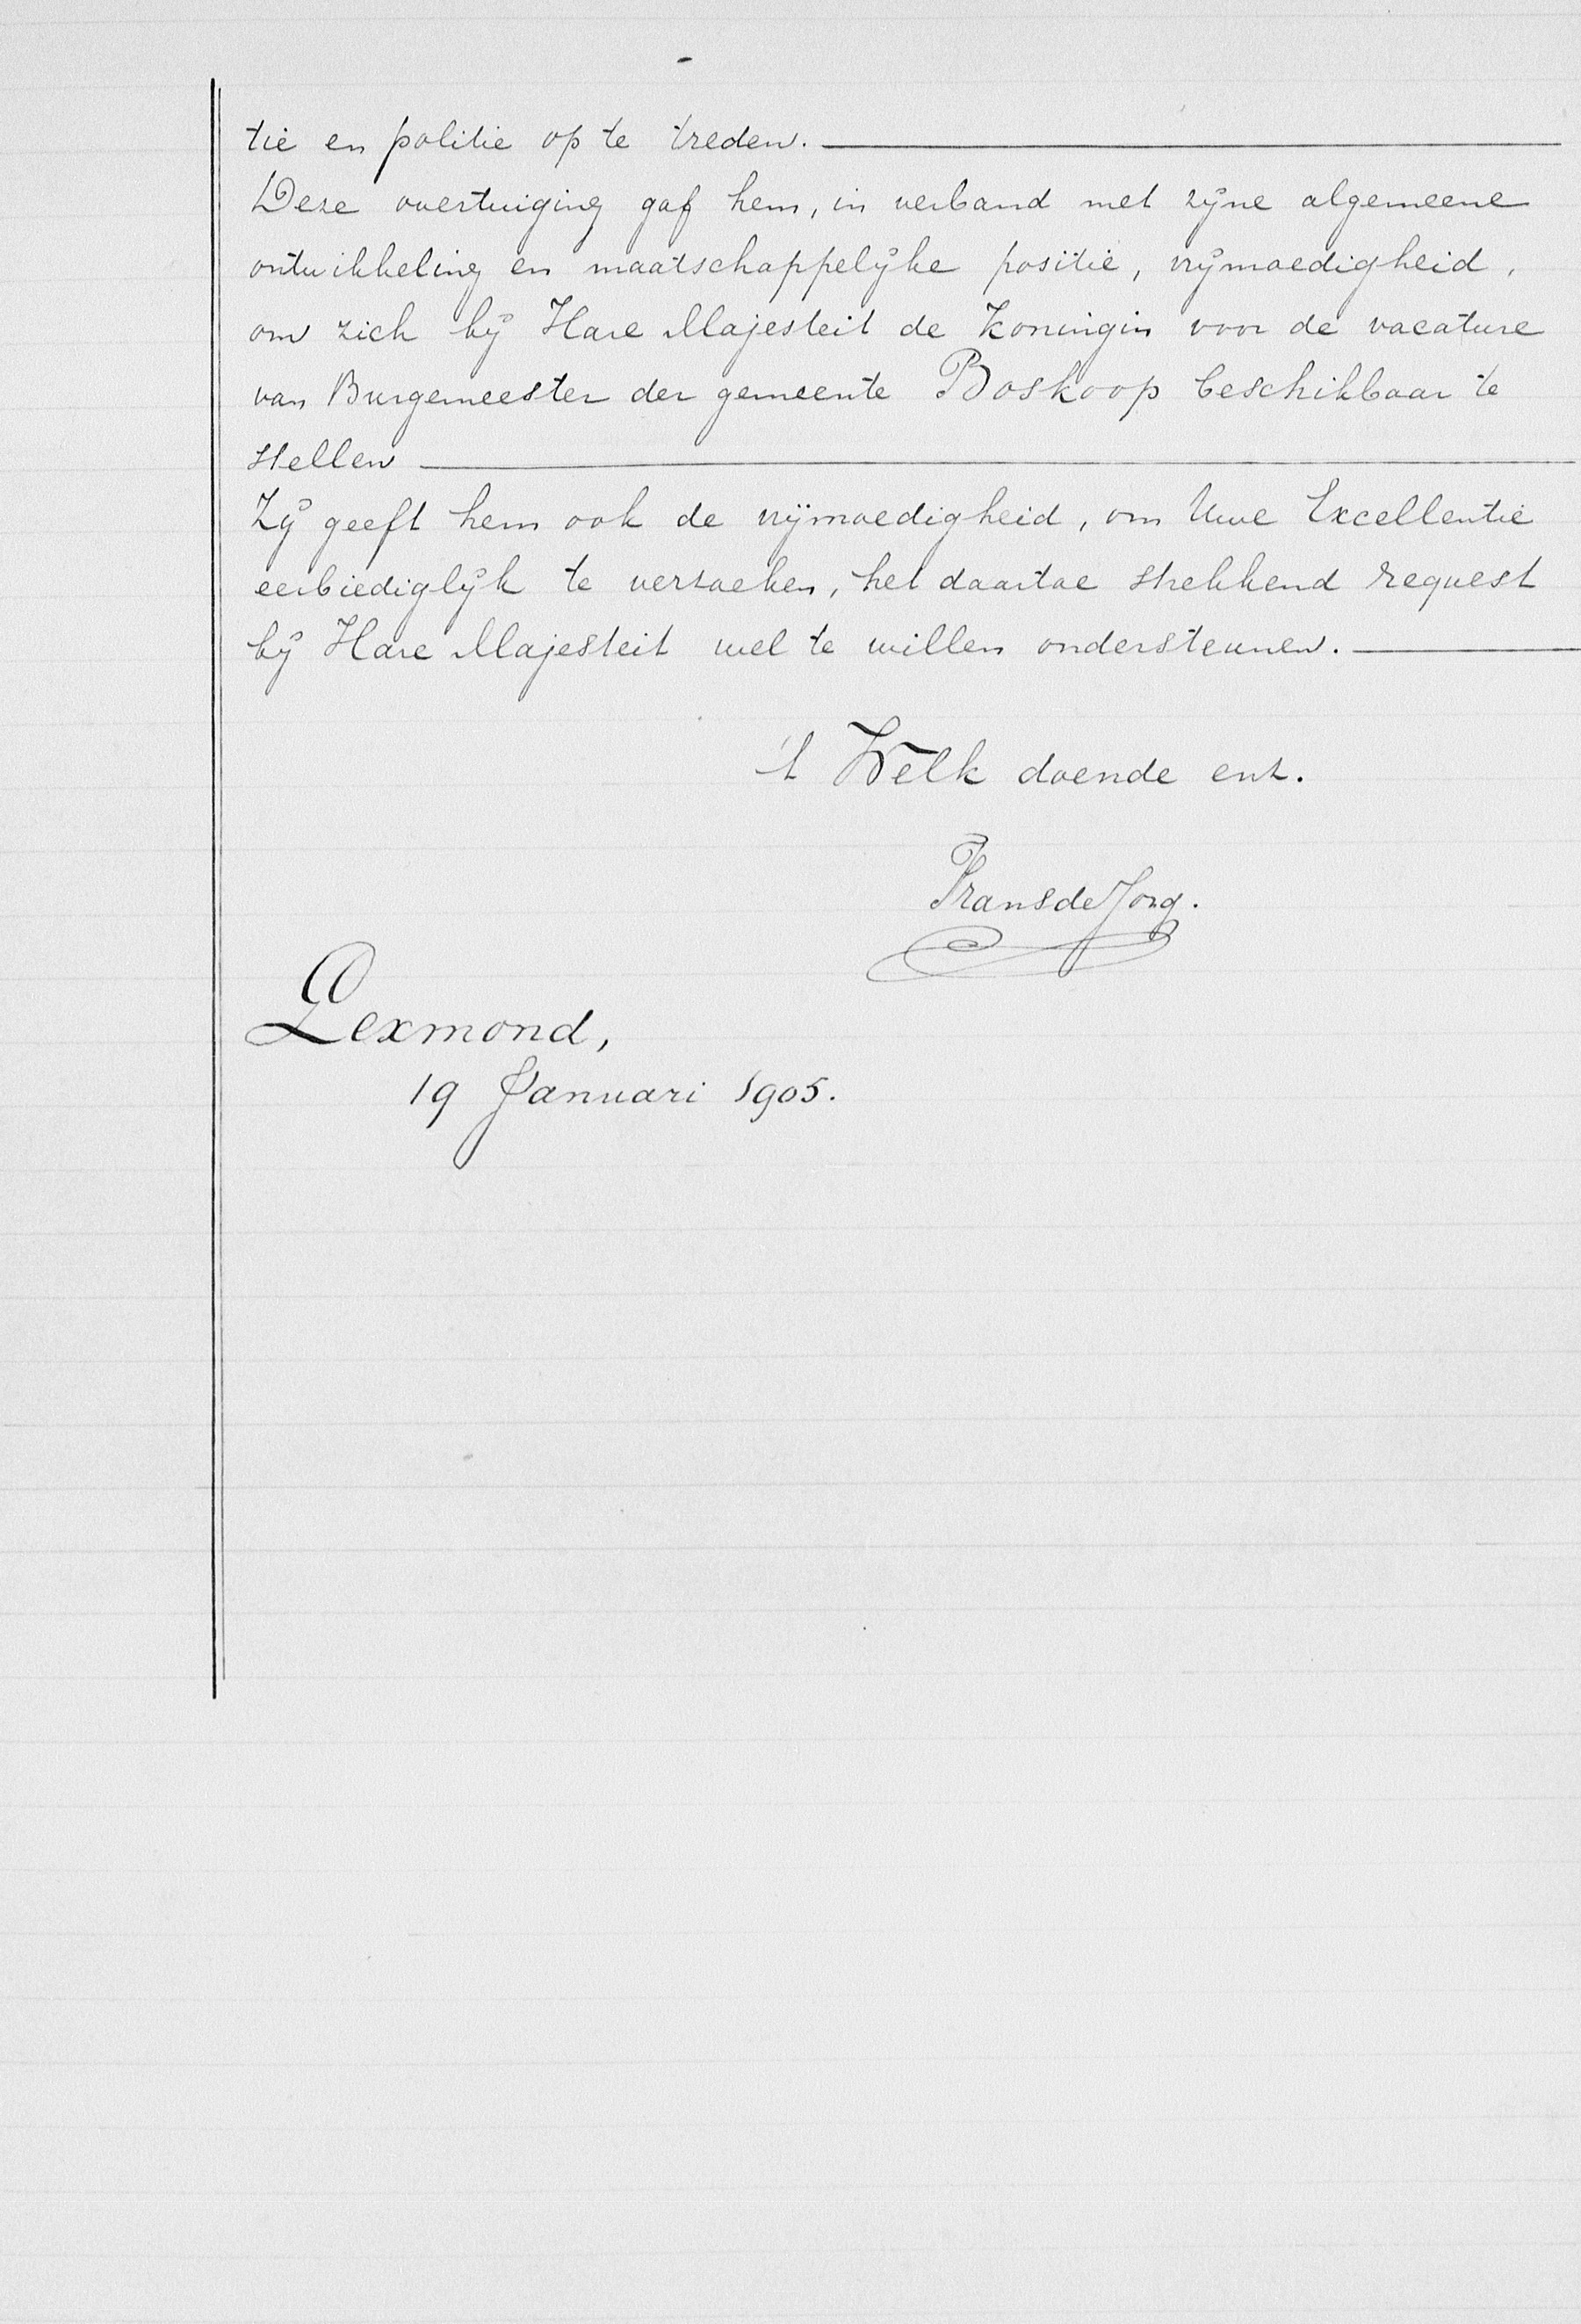 tie en politie op te treden.
Deze overtuiging gaf hem, in verband met zijne algemeene
ontwikkeling en maatschappelijke positie, vrijmoedigheid,
om zich bij Hare Majesteit de Koningin voor de vacature
van Burgemeester der gemeente Boskoop beschikbaar te
stellen
Zij geeft hem ook de vrijmoedigheid, om Uwe Excellentie
eerbiediglijk te verzoeken, het daartoe strekkend request
bij Hare Majesteit wel te willen ondersteunen.
't Welk doende enz.
Frans de Jong.
Lexmond,
19 Januari 1905.